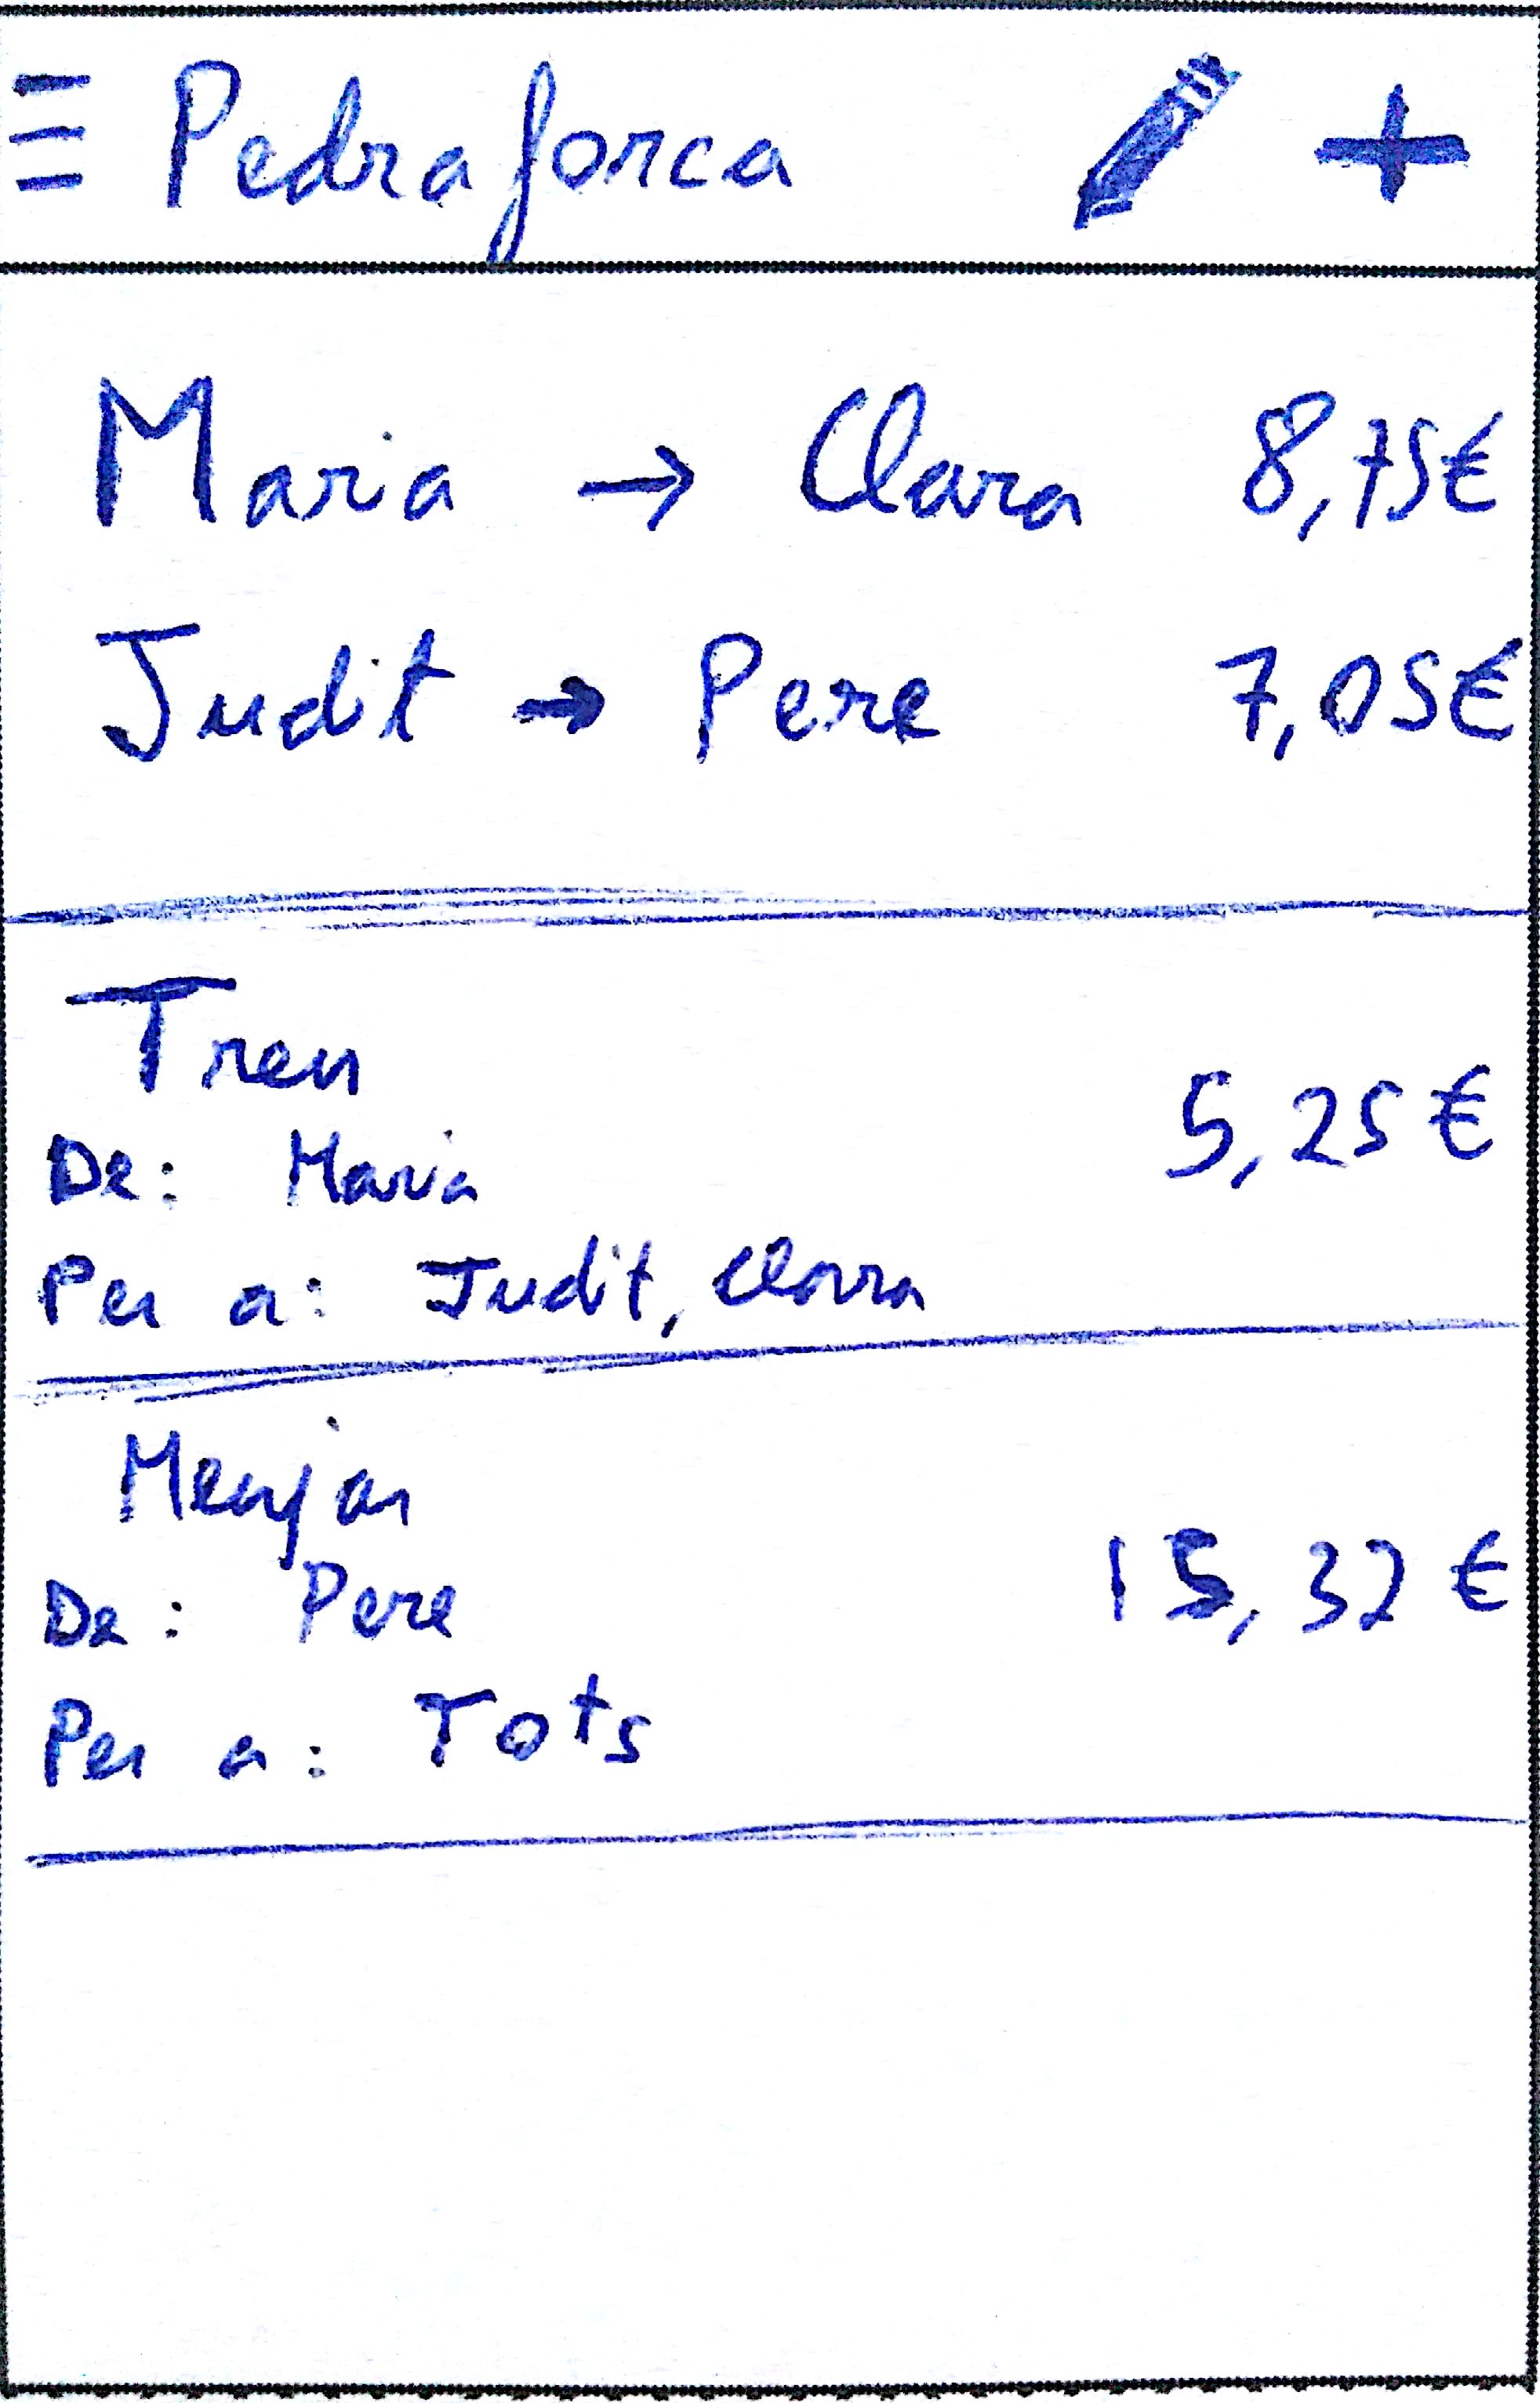 Pedraforca
Maria → Clara 8,75€
Judit → Pere 7,05€
Tren
5,25€
De: Maria
Per a: Judit, Clara
Menjar
15,32€
De: Pere
Per a: Tots